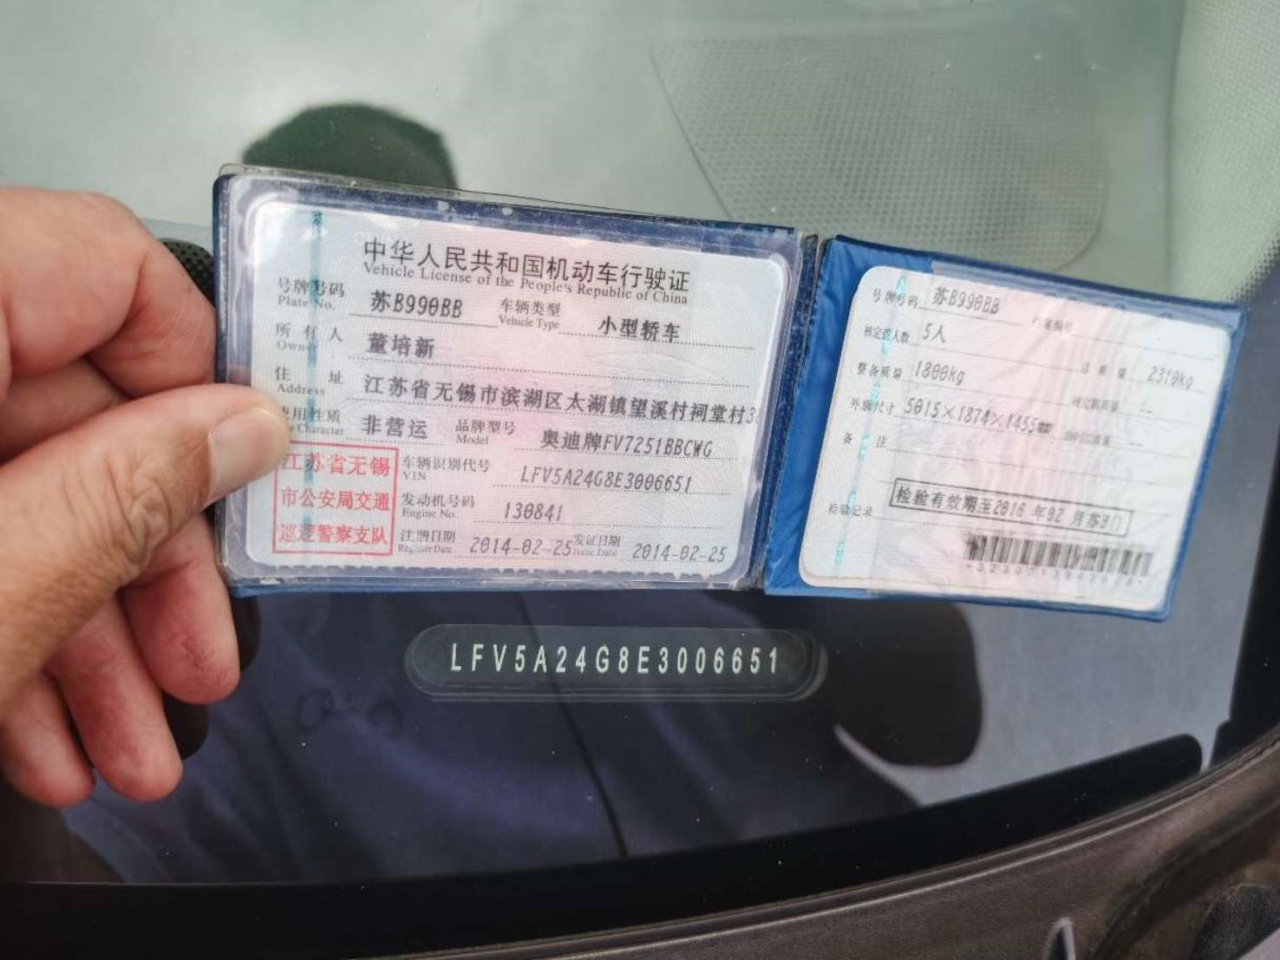 中华人民共和国机动车行驶证
Vehicle License of the People's Republic of China
号牌号码 苏B990BB 车辆类型 小型轿车
Plate No. Vehicle Type
所有人 董培新
Owner
住址 江苏省无锡市滨湖区太湖镇望溪村祠堂村3
Address
使用性质 非营运 品牌型号 奥迪牌FV7251BBCWG
Character Model
江苏省无锡
市公安局交通
巡逻警察支队
车辆识别代号 LFV5A24G8E3006651
VIN
发动机号码 130841
Engine No.
注册日期 2014-02-25 发证日期 2014-02-25
Register Date Issue Date
号牌号码 苏B990BB
核定载人数 5人 总质量 2310kg
整备质量 1800kg
外廓尺寸 5015×1874×1455mm
备注
检验记录 检验有效期至2016年02月苏B
LFV5A24G8E3006651